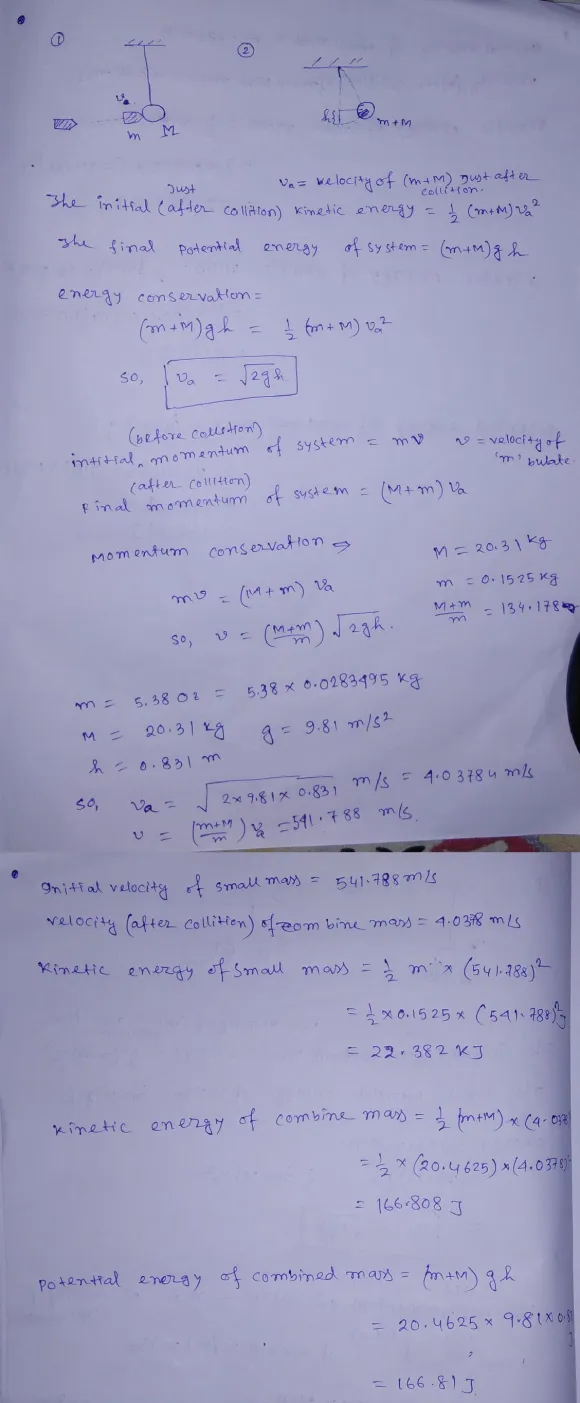 ① ②
vₐ
h
m M
m+M
vₐ = velocity of (m+M) Just after collition.
The initial (Just after collition) kinetic energy = 1/2 (m+M)vₐ²
The final potential energy of system = (m+M)gh
energy conservation =
(m+M)gh = 1/2 (m+M) vₐ²
so, vₐ = √2gh
(before collition)
intitial momentum of system = mv v = velocity of 'm' bulate.
(after collition)
Final momentum of system = (M+m) vₐ
Momentum conservation ⇒ M = 20.31 kg
mv = (M+m) vₐ m = 0.1525 kg
so, v = (M+m/m) √2gh. M+m/m = 134.178
m = 5.38 Oz = 5.38 x 0.0283495 kg
M = 20.31 kg g = 9.81 m/s²
h = 0.831 m
so, vₐ = √2x9.81x0.831 m/s = 4.03784 m/s
v = (m+M/m) vₐ = 541.788 m/s.
Initial velocity of small mass = 541.788 m/s
velocity (after collition) of combine mass = 4.0378 m/s
kinetic energy of small mass = 1/2 m x (541.788)²
= 1/2 x 0.1525 x (541.788)² J
= 22.382 KJ
kinetic energy of combine mass = 1/2 (m+M) x (4.0378
= 1/2 x (20.4625) x (4.0378)²
= 166.808 J
potential energy of combined mass = (m+M) gh
= 20.4625 x 9.81 x 0.8
J
= 166.81 J